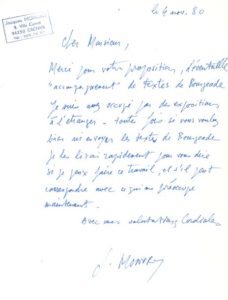 Jacques
94230 CACHAN
le 4 nov. 80
Cher Monsieur,
Merci pour votre proposition, d'éventuelle
"accompagnement" de textes de Bourgeade
Je suis occupé par des expositions
à l'étranger - toute fois si vous voulez
bien m'envoyer les textes de Bourgeade
je les lirai rapidement pour vous dire
si je peux faire ce travail, et s'il peut
correspondre avec ce qui me préoccupe
maintenant.
Avec mes salutations Cordiales
J. MONORY